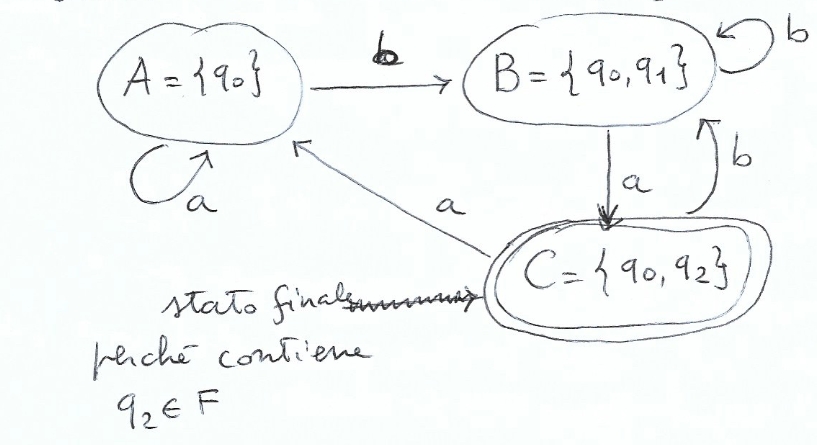 b
b
A = {q0}
B = {q0, q1}
a
a
b
a
C = {q0, q2}
stato finale
perché contiene
q2 ∈ F